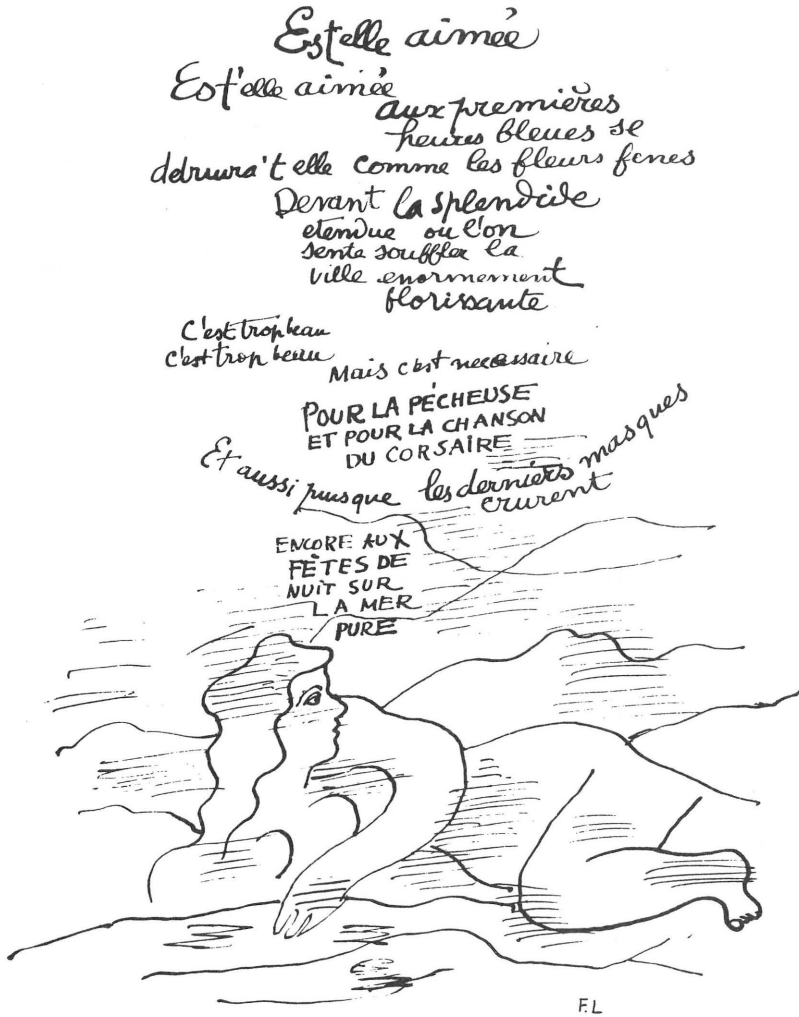 Est elle aimée
Est'elle aimée
aux premières
heures bleues se
detruira't elle comme les fleurs fanes
Devant la splendide
etendue ou l'on
sente souffler la
ville enormement
florissante
C'est trop beau
c'est trop beau
Mais c'est necessaire
POUR LA PÉCHEUSE
ET POUR LA CHANSON
DU CORSAIRE
Et aussi puisque les derniers masques
crurent
ENCORE AUX
FÊTES DE
NUIT SUR
LA MER
PURE
F.L